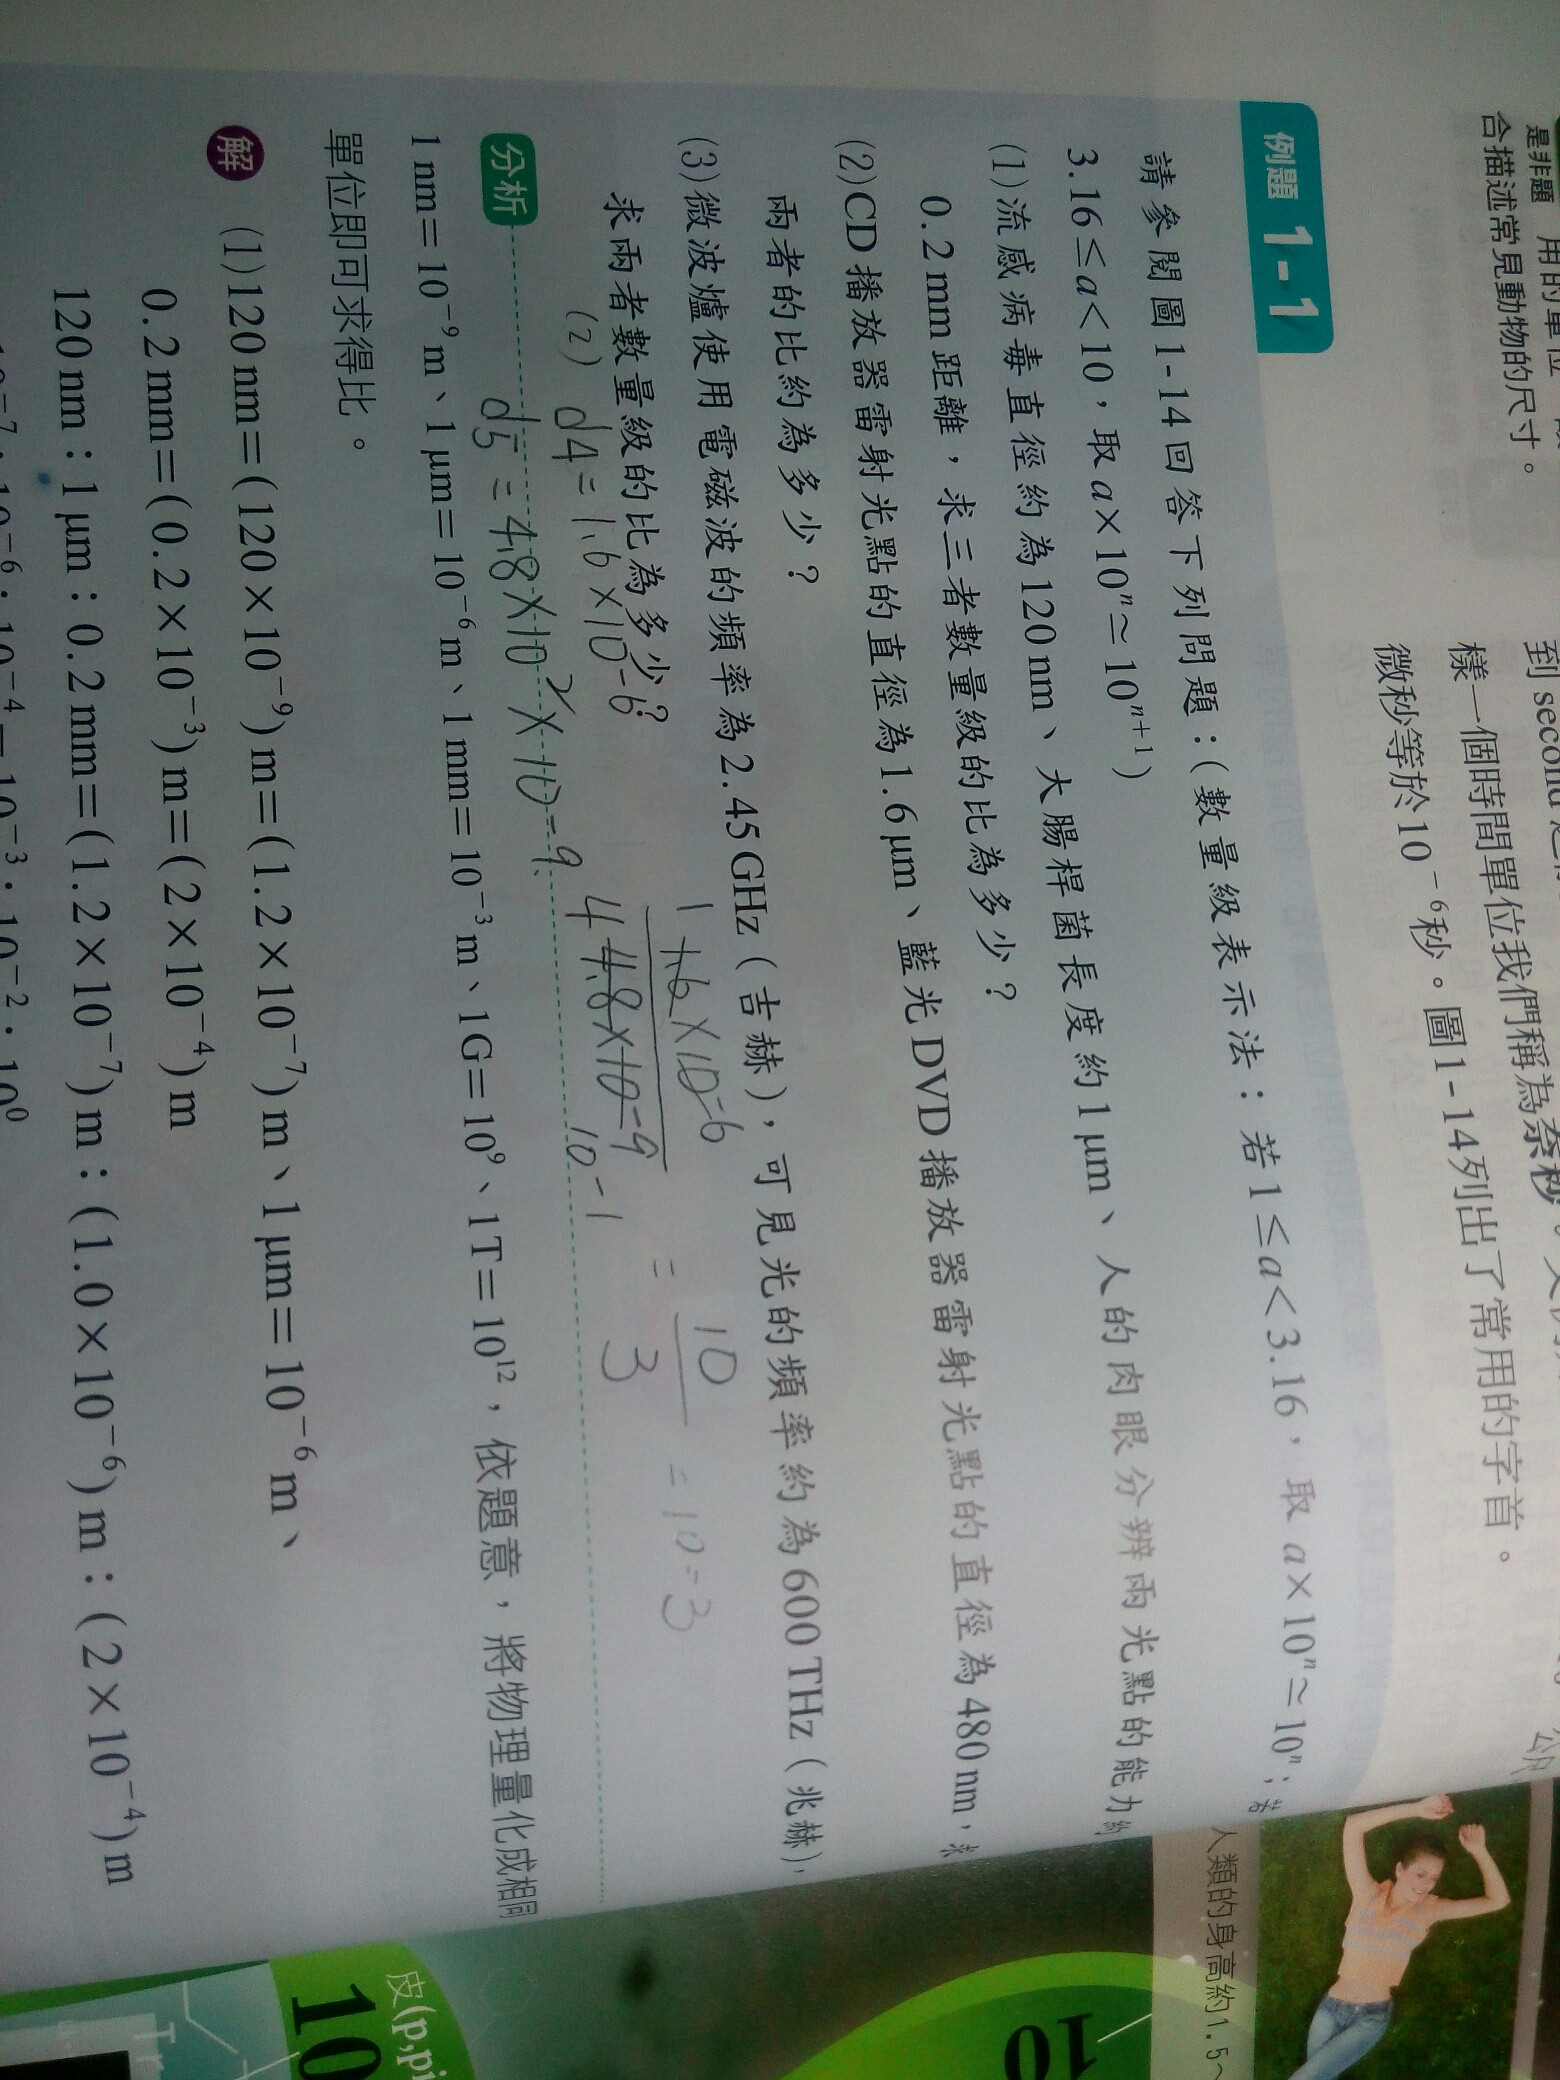 是非題
用的單位
合描述常見動物的尺寸。
到 second
樣一個時間單位我們稱為奈秒。
微秒等於10⁻⁶秒。圖1-14列出了常用的字首。
例題 1-1
請參閱圖1-14回答下列問題：(數量級表示法：若1≤a<3.16，取 a×10ⁿ≃10ⁿ；若
3.16≤a<10，取a×10ⁿ≃10ⁿ⁺¹)
(1)流感病毒直徑約為120nm、大腸桿菌長度約1μm、人的肉眼分辨兩光點的能力約
0.2mm距離，求三者數量級的比為多少？
(2)CD播放器雷射光點的直徑為1.6μm、藍光DVD播放器雷射光點的直徑為480nm，求
兩者的比約為多少？
(3)微波爐使用電磁波的頻率為2.45GHz（吉赫），可見光的頻率約為600THz（兆赫），
求兩者數量級的比為多少？
(2) d4=1.6×10-6
d5=4.8×10²×10-9.
1 1.6×10-6
4 4.8×10-9 10-1
= 10
3
=10=3
分析
1nm=10⁻⁹m、1μm=10⁻⁶m、1mm=10⁻³m、1G=10⁹、1T=10¹²，依題意，將物理量化成相同
單位即可求得比。
解 (1)120nm=(120×10⁻⁹)m=(1.2×10⁻⁷)m、1μm=10⁻⁶m、
0.2mm=(0.2×10⁻³)m=(2×10⁻⁴)m
120nm：1μm：0.2mm=(1.2×10⁻⁷)m：(1.0×10⁻⁶)m：(2×10⁻⁴)m
10⁻⁷：10⁻⁶：10⁻⁴=10⁻³：10⁻²：10⁰
人類的身高約1.5~
10
皮(p,pi
10